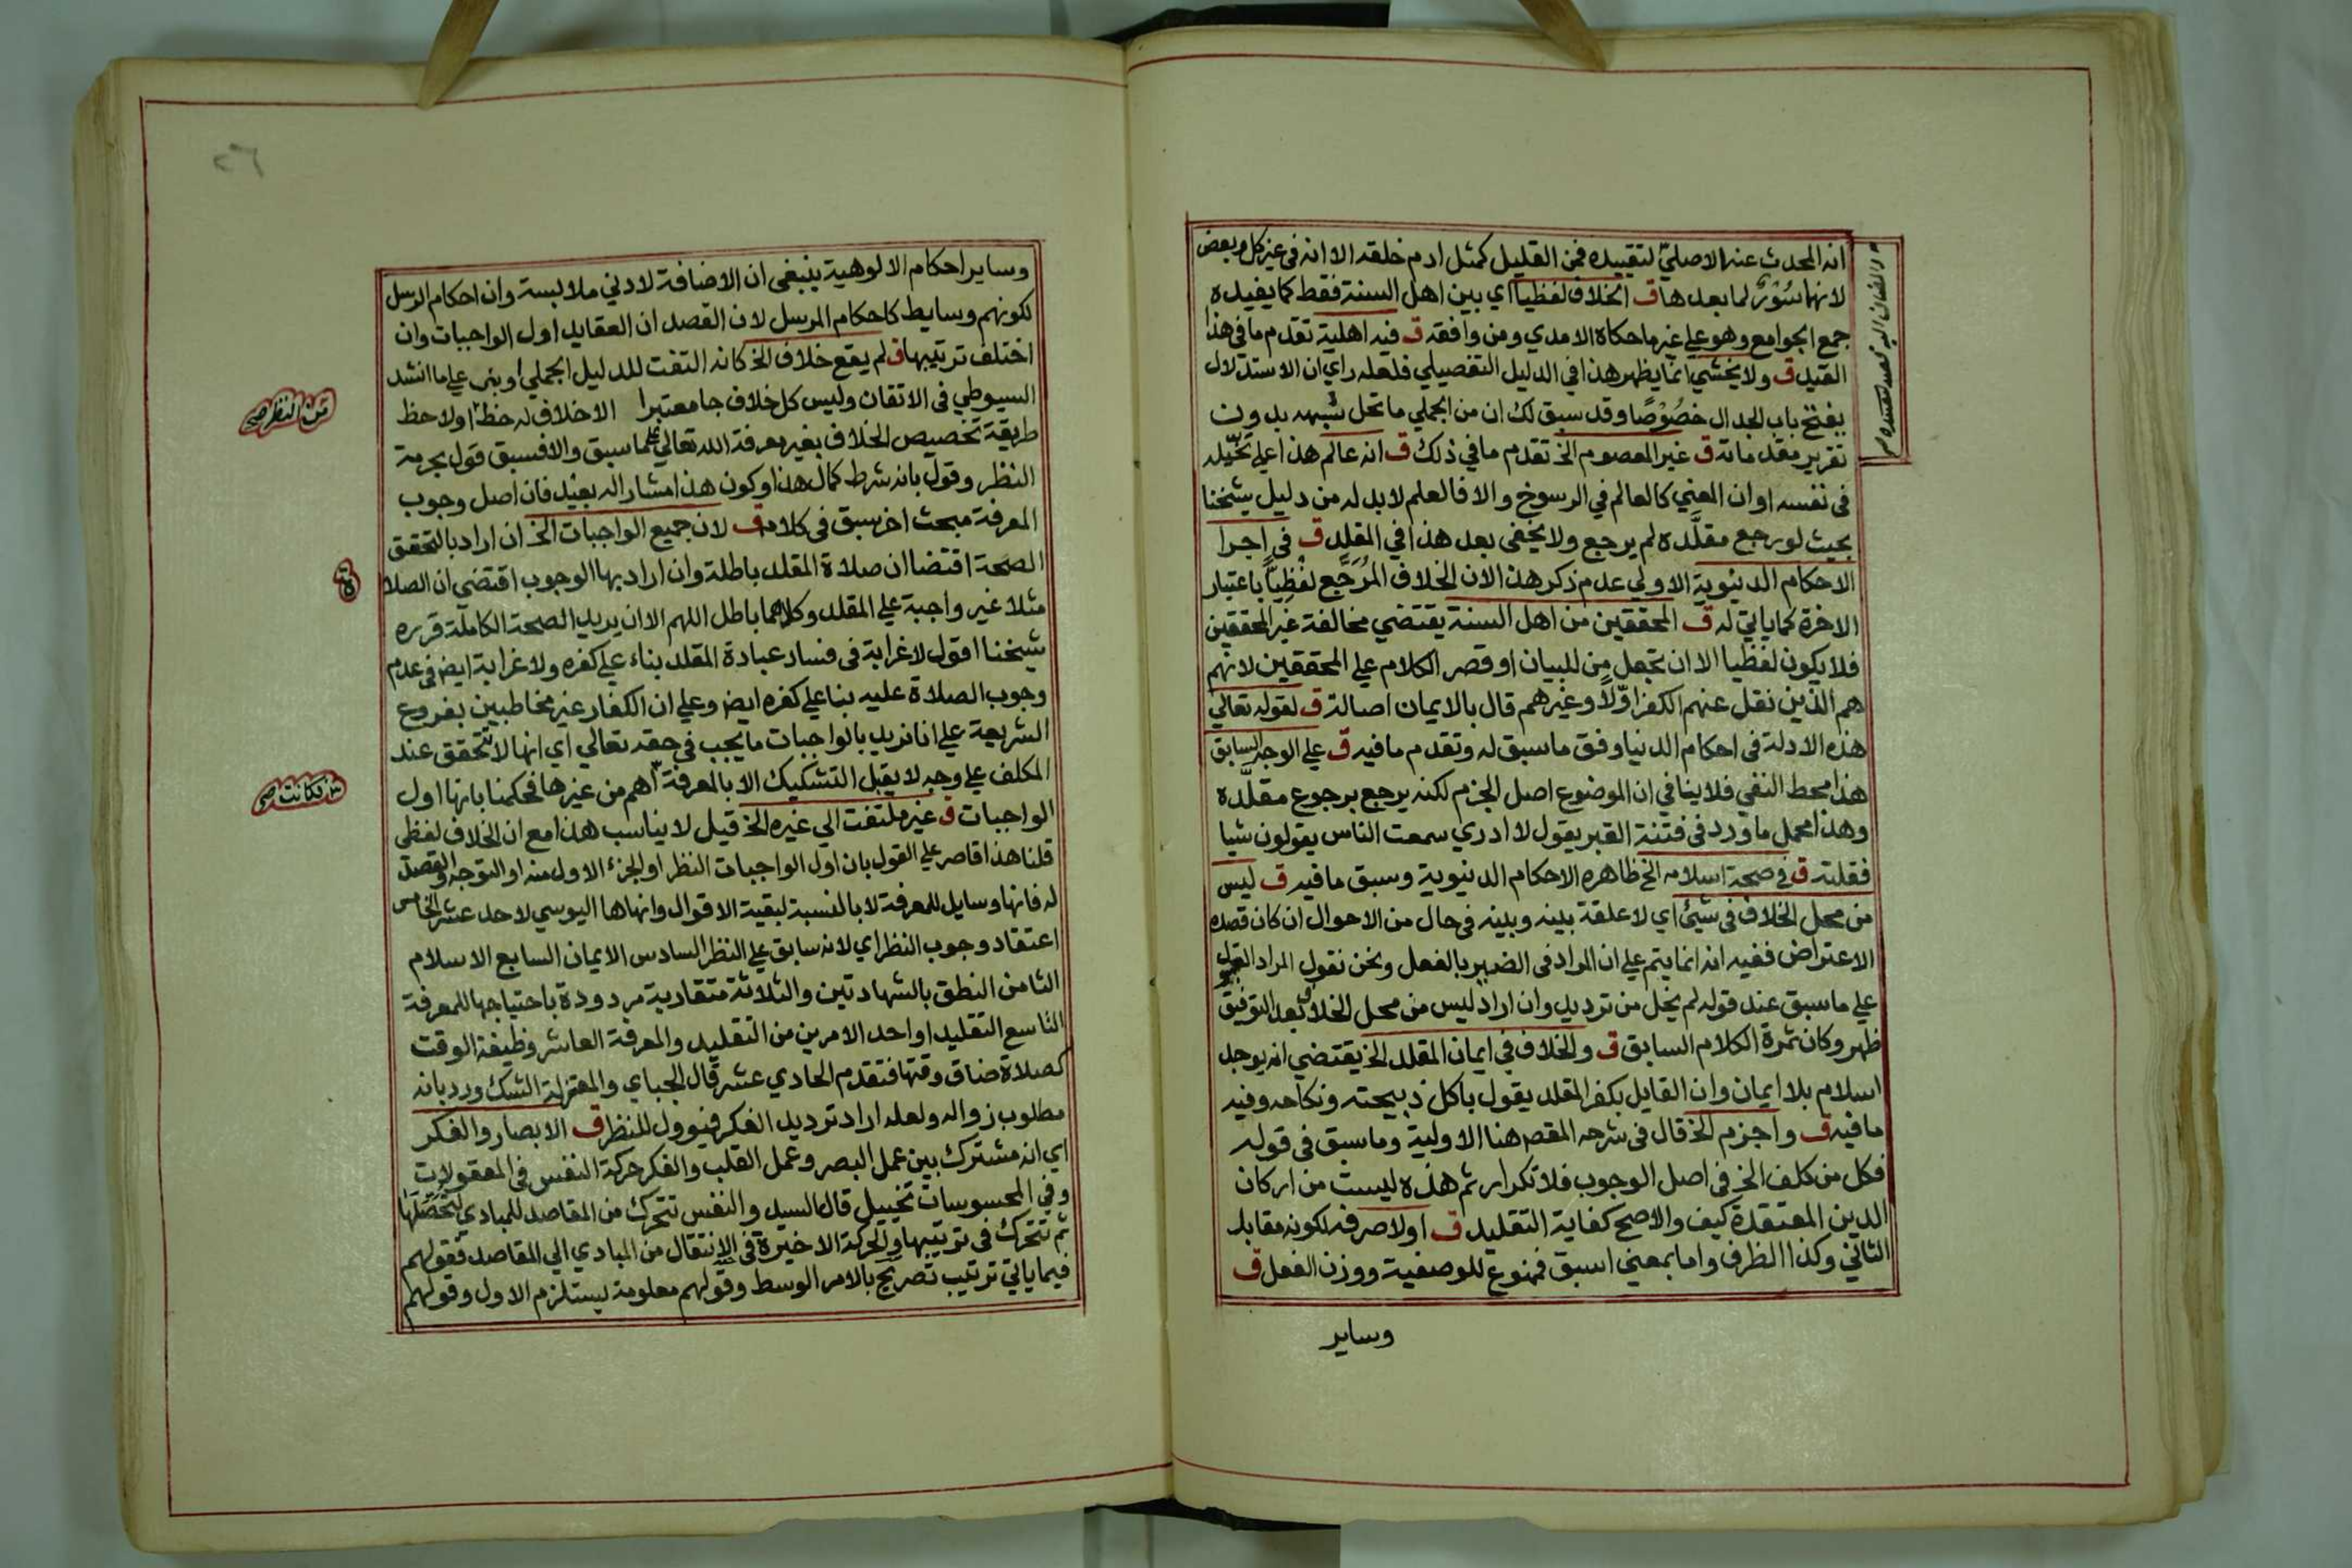 انه المحدث عنه الاصليّ لتقييده فمن القليل كمثل ادم خلقه الا انه في غير كل وبعض
لانها سُوْرٌ لما بعدها ق الخلاف لفظيا اي بين اهل السنة فقط كما يفيده
جمع الجوامع وهو علي غير ما حكاه الامدي ومن وافقه ق فيه اهلية تقدم ما في هذا
القيد ق ولا يخشي انما يظهر هذا في الدليل التفصيلي فلعله راي ان الاستدلال
يفتح باب الجدال خصُوْصًا وقد سبق لك ان من الجملي ما تحل شبهه بدون
تقرير مقدماته ق غير المعصوم الخ تقدم ما في ذلك ق انه عالم هذا علي تخيّله
في نفسه او ان المعني كالعالم في الرسوخ والا فالعلم لابد له من دليل شيخنا
بحيث لو رجع مقلَّده لم يرجع ولا يخفي بعد هذا في المقلد ق في اجرا
الاحكام الدنيوية الاولي عدم ذكر هذه الان الخلاف المُرَجَّع لفظيا باعتبار
الاخرة كما ياتي له ق المحققين من اهل السنة يقتضي مخالفة غير المحققين
فلا يكون لفظيا الا ان تجعل مِن للبيان او قصر الكلام علي المحققين لانهم
هم الذين نقل عنهم الكفر اوّلاً وغيرهم قال بالايمان اصالة ق لقوله تعالي
هذه الادلة في احكام الدنيا وفق ما سبق له وتقدم ما فيه ق علي الوجه السابق
هذا محط النفي فلا ينافي ان الموضوع اصل الجزم لكنه يرجع برجوع مقلَّده
وهذا محمل ما ورد في فتنة القبر يقول لا ادري سمعت الناس يقولون شيا
فقلته ق في صحة اسلامه الخ ظاهره الاحكام الدنيوية وسبق ما فيه ق ليس
من محل الخلاف في شيئ اي لا علقة بينه وبينه في حال من الاحوال ان كان قصده
الاعتراض ففيه انه انما يتم علي ان المراد في الضمير بالفعل ونحن نقول المراد
علي ما سبق عند قوله لم يخل من ترديد وان اراد ليس من محل الخلاف بعد التوفيق
ظهر وكان ثمرة الكلام السابق ق والخلاف في ايمان المقلد الخ يقتضي انه يوجد
اسلام بلا ايمان وان القايل بكفر المقلد يقول باكل ذبيحته ونكاحه وفيه
ما فيه ق واجزم الخ قال في شرحه المقصم هنا الاولية وما سبق في قوله
فكل من كلف الخ في اصل الوجوب فلا تكرار ثم هذه ليست من اركان
الدين المعتقدة كيف والاصح كفاية التقليد ق اولا صرفه لكونه مقابل
الثاني وكذا الظرف واما بمعني اسبق فممنوع للوصفية ووزن الفعل ق
وساير
٢٦
وساير احكام الالوهية ينبغي ان الاضافة لادني ملابسة وان احكام الرسل
لكونهم وسايط كاحكام المرسل لان القصد ان العقايد اول الواجبات وان
اختلف ترتيبها ق لم يقع خلاف الخ كانه التفت للدليل الجملي او بني علي ما انشد
السيوطي في الاتقان وليس كل خلاف جا معتبرا الا خلاف له حظ او لاحظ
من النظر صح
طريقة تخصيص الخلاف بغير معرفة الله تعالي علي ما سبق والا فسبق قول بحرمة
النظر وقول بانه شرط كمال هذا وكون هذا مشارا له بعيد فان اصل وجوب
المعرفة مبحث اخر سبق في كلامه ق لان جميع الواجبات الخ ان اراد بالتحقق
الصحة اقتضا ان صلاة المقلد باطلة وان اراد بها الوجوب اقتضي ان الصلا
ة
مثلا غير واجبة علي المقلد وكلاهما باطل اللهم الا ان يريد الصحة الكاملة قرره
شيخنا اقول لا غرابة في فساد عبادة المقلد بناء علي كفره ولا غرابة ايض في عدم
وجوب الصلاة عليه بنا علي كفره ايض وعلي ان الكفار غير مخاطبين بفروع
الشريعة علي انا نريد بالواجبات ما يجب في حقه تعالي اي انها لا تتحقق عند
المكلف علي وجه لا يقبل التشكيك الا بالمعرفة اهم من غيرها فحكمنا بانها اول
فكانت صح
الواجبات ق غير ملتفت الي غيره الخ قيل لا يناسب هذا مع ان الخلاف لفظي
قلنا هذا قاصر علي القول بان اول الواجبات النظر او الجزء الاول منه او التوجه والقصد
له فانها وسايل للمعرفة لا بالنسبة لبقية الاقوال وانهاها اليوسي لاحد عشر الخامس
اعتقاد وجوب النظر اي لانه سابق علي النظر السادس الايمان السابع الاسلام
الثامن النطق بالشهادتين والثلاثة متقاربة مردودة باحتياجها للمعرفة
التاسع التقليد او احد الامرين من التقليد والمعرفة العاشر وظيفة الوقت
كصلاة ضاق وقتها فتقدم الحادي عشر قال الجباي والمعتزلة الشك ورد بانه
مطلوب زواله ولعله اراد ترديد الفكر فيوول للنظر ق الابصار والفكر
اي انه مشترك بين عمل البصر وعمل القلب والفكر حركة النفس في المعقولات
وفي المحسوسات تخييل قال السيد والنفس تتحرك من المقاصد للمبادي لتحصلها
ثم تتحرك في ترتيبها والحركة الاخيرة في الانتقال من المبادي الي المقاصد فقولهم
فيما ياتي ترتيب تصريح بالامر الوسط وقولهم معلومة يستلزم الاول وقولهم